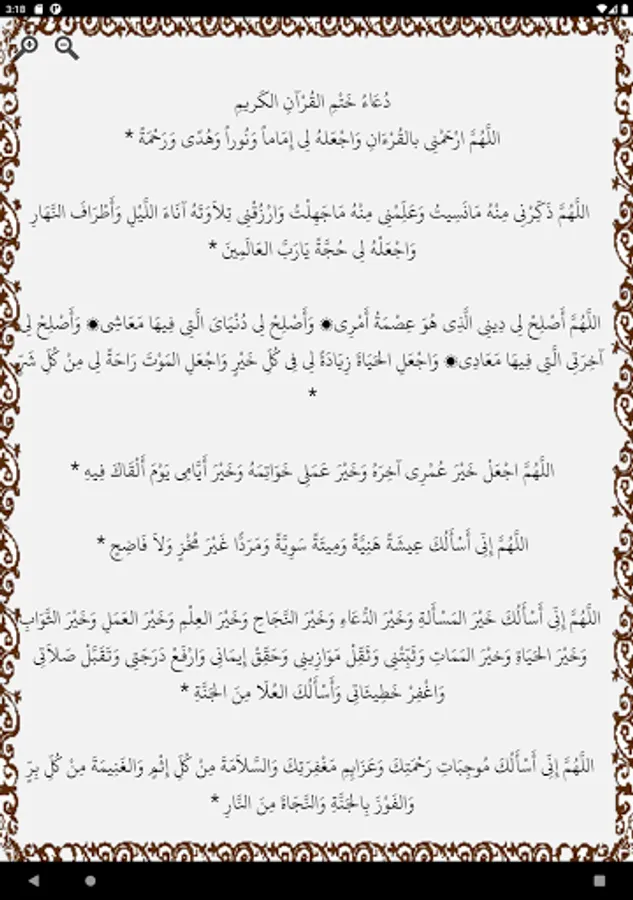 3:18
دُعَاءُ خَتْمِ القُرْآنِ الكَريمِ
اللَّهُمَّ ارْحَمْنِى بالقُرْءَانِ وَاجْعَلهُ لِى إِمَاماً وَنُوراً وَهُدًى وَرَحْمَةً *
اللَّهُمَّ ذَكِّرْنِى مِنْهُ مَانَسِيتُ وَعَلِّمْنِى مِنْهُ مَاجَهِلْتُ وَارْزُقْنِى تِلاَوَتَهُ آنَاءَ اللَّيْلِ وَأَطْرَافَ النَّهَارِ
وَاجْعَلْهُ لِى حُجَّةً يَارَبَّ العَالَمِينَ *
اللَّهُمَّ أَصْلِحْ لِى دِينِى الَّذِى هُوَ عِصْمَةُ أَمْرِى۞ وَأَصْلِحْ لِى دُنْيَاىَ الَّتِى فِيهَا مَعَاشِى۞ وَأَصْلِحْ لِى
آخِرَتِى الَّتِى فِيهَا مَعَادِى۞ وَاجْعَلِ الحَيَاةَ زِيَادَةً لِى فِى كُلِّ خَيْرٍ وَاجْعَلِ المَوْتَ رَاحَةً لِى مِنْ كُلِّ شَرّ
*
اللَّهُمَّ اجْعَلْ خَيْرَ عُمْرِى آخِرَهُ وَخَيْرَ عَمَلِى خَوَاتِمَهُ وَخَيْرَ أَيَّامِى يَوْمَ أَلْقَاكَ فِيهِ *
اللَّهُمَّ إِنِّى أَسْأَلُكَ عِيشَةً هَنِيَّةً وَمِيتَةً سَوِيَّةً وَمَرَدًّا غَيْرَ مُخْزٍ وَلاَ فَاضِحٍ *
اللَّهُمَّ إِنِّى أَسْأَلُكَ خَيْرَ المَسْأَلةِ وَخَيْرَ الدُّعَاءِ وَخَيْرَ النَّجَاحِ وَخَيْرَ العِلْمِ وَخَيْرَ العَمَلِ وَخَيْرَ الثَّوَابِ
وَخَيْرَ الحَيَاةِ وَخيْرَ المَمَاتِ وَثَبِّتْنِى وَثَقِّلْ مَوَازِينِى وَحَقِّقْ إِيمَانِى وَارْفَعْ دَرَجَتِى وَتَقَبَّلْ صَلاَتِى
وَاغْفِرْ خَطِيئَاتِى وَأَسْأَلُكَ العُلَا مِنَ الجَنَّةِ *
اللَّهُمَّ إِنِّى أَسْأَلُكَ مُوجِبَاتِ رَحْمَتِكَ وَعَزَايِمِ مَغْفِرَتِكَ وَالسَّلاَمَةَ مِنْ كُلِّ إِثْمٍ وَالغَنِيمَةَ مِنْ كُلِّ بِرٍّ
وَالفَوْزَ بِالجَنَّةِ وَالنَّجَاةَ مِنَ النَّارِ *